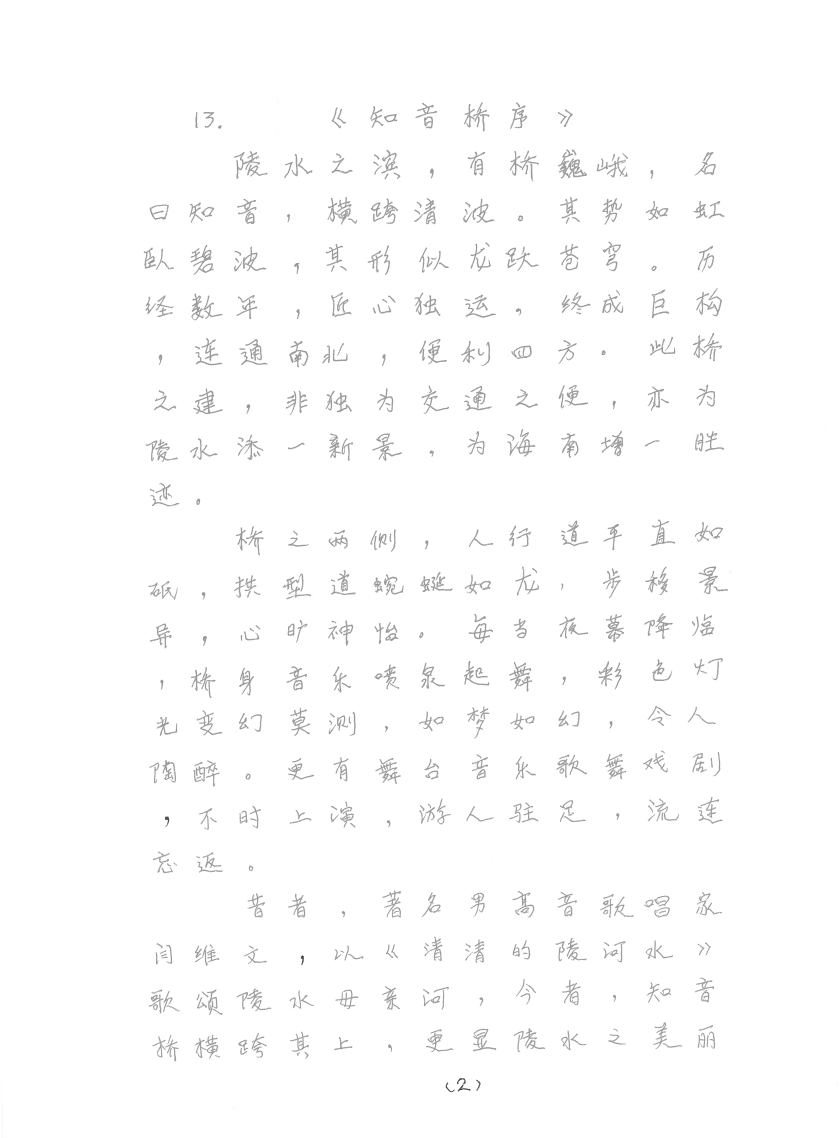 13. 《知音桥序》
陵水之滨，有桥巍峨，名
曰知音，横跨清波。其势如虹
卧碧波，其形似龙跃苍穹。历
经数年，匠心独运，终成巨构
，连通南北，便利四方。此桥
之建，非独为交通之便，亦为
陵水添一新景，为海南增一胜
迹。
桥之两侧，人行道平直如
砥，拱型道蜿蜒如龙，步移景
异，心旷神怡。每当夜幕降临
，桥身音乐喷泉起舞，彩色灯
光变幻莫测，如梦如幻，令人
陶醉。更有舞台音乐歌舞戏剧
，不时上演，游人驻足，流连
忘返。
昔者，著名男高音歌唱家
闫维文，以《清清的陵河水》
歌颂陵水母亲河，今者，知音
桥横跨其上，更显陵水之美丽
(2)